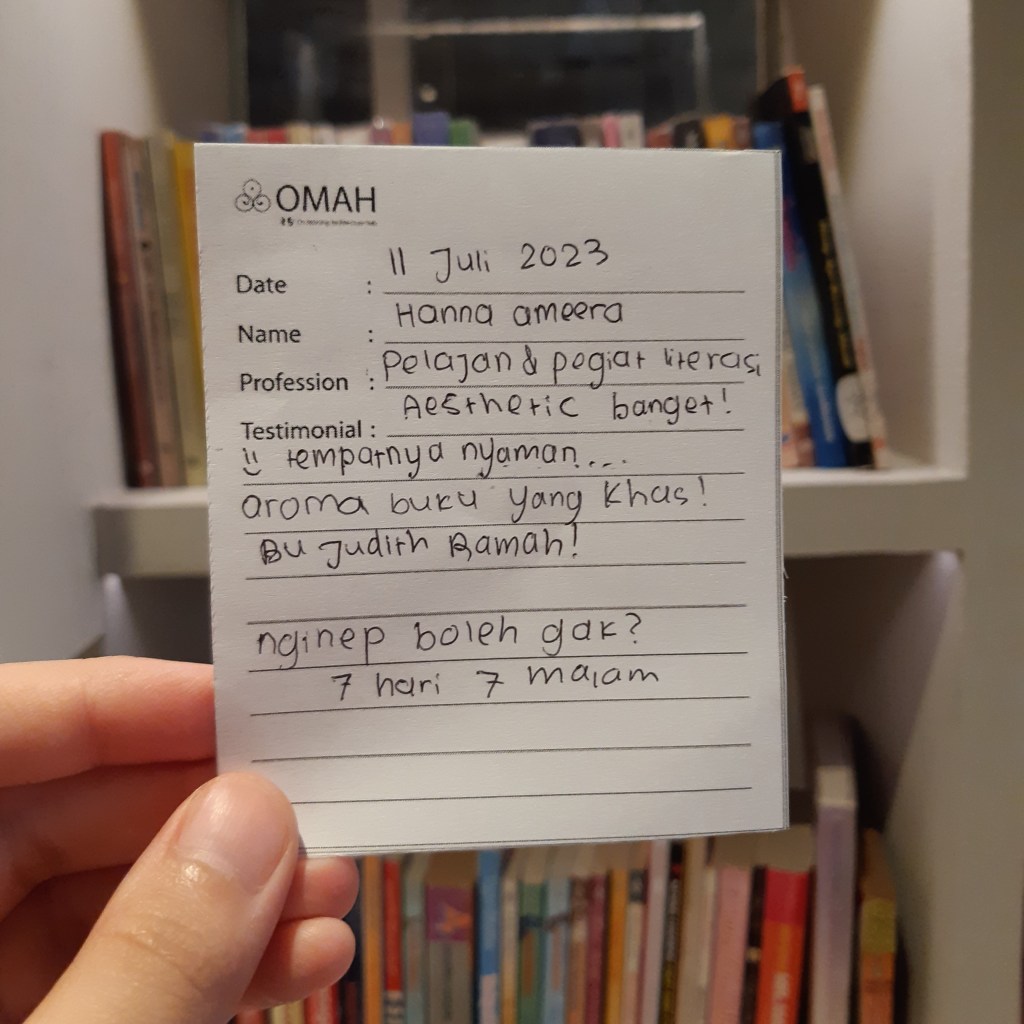 OMAH
Date : 11 Juli 2023
Name : Hanna ameera
Profession : Pelajan & pegiat literasi
Testimonial : Aesthetic banget!
tempatnya nyaman...
aroma buku yang khas!
Bu Judith Ramah!
nginep boleh gak?
7 hari 7 malam